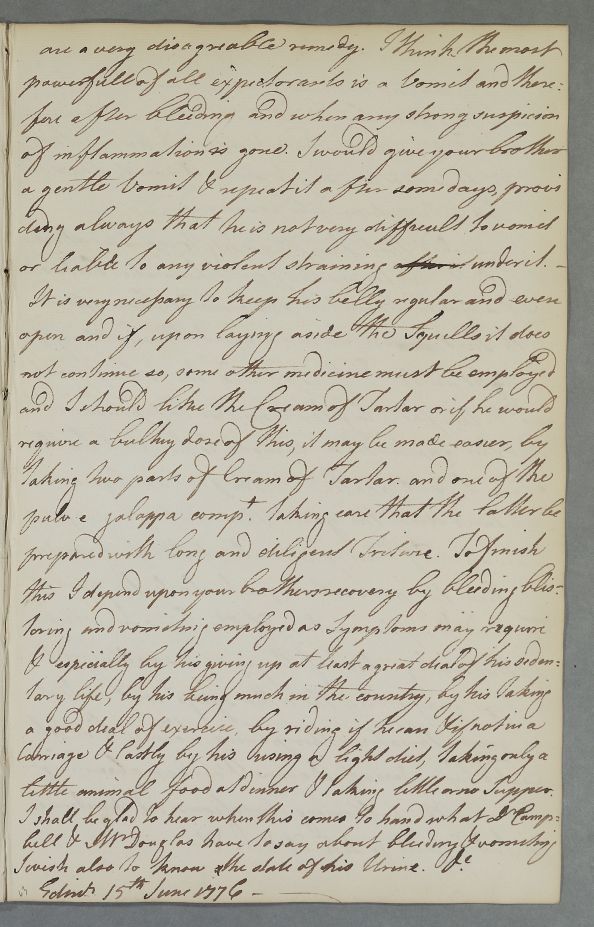 are a very disagreable remedy. I think the most
powerfull of all expectorants is a Vomit and there:
fore after bleeding and when any strong suspicion
of inflammation is gone I would give your brother
a gentle Vomit & repeat it after some days, provi
ding always that he is not very difficult to vomit
or liable to any violent straining under it. —
It is very necessary to keep his belly regular and even
open and if, upon laying aside the Squills it does
not continue so, some other medicine must be employed
and I should like the Cream of Tartar or if he would
require a bulky dose of this, it may be made easier, by
taking two parts of Cream of Tartar. and one of the
pulv e jalappa comp.t taking care that the latter be
prepared with long and diligent Triture. To finish
this I depend upon your brothers recovery by bleeding blis-
tering and vomiting employed as Symptoms may require
& especially by his giving up at least a great deal of his seden:
tary life, by his being much in the country, by his taking
a good deal of exercise, by riding if he can & if not in a
Carriage & lastly by his using a light diet, taking only a
little animal food at dinner & taking little or no Supper.
I shall be glad to hear when this comes to hand what Dr Camp-
bell & Mr Douglas have to say about bleeding & vomiting
I wish also to know the state of his Urine. &c
Edinr 15th June 1776 —